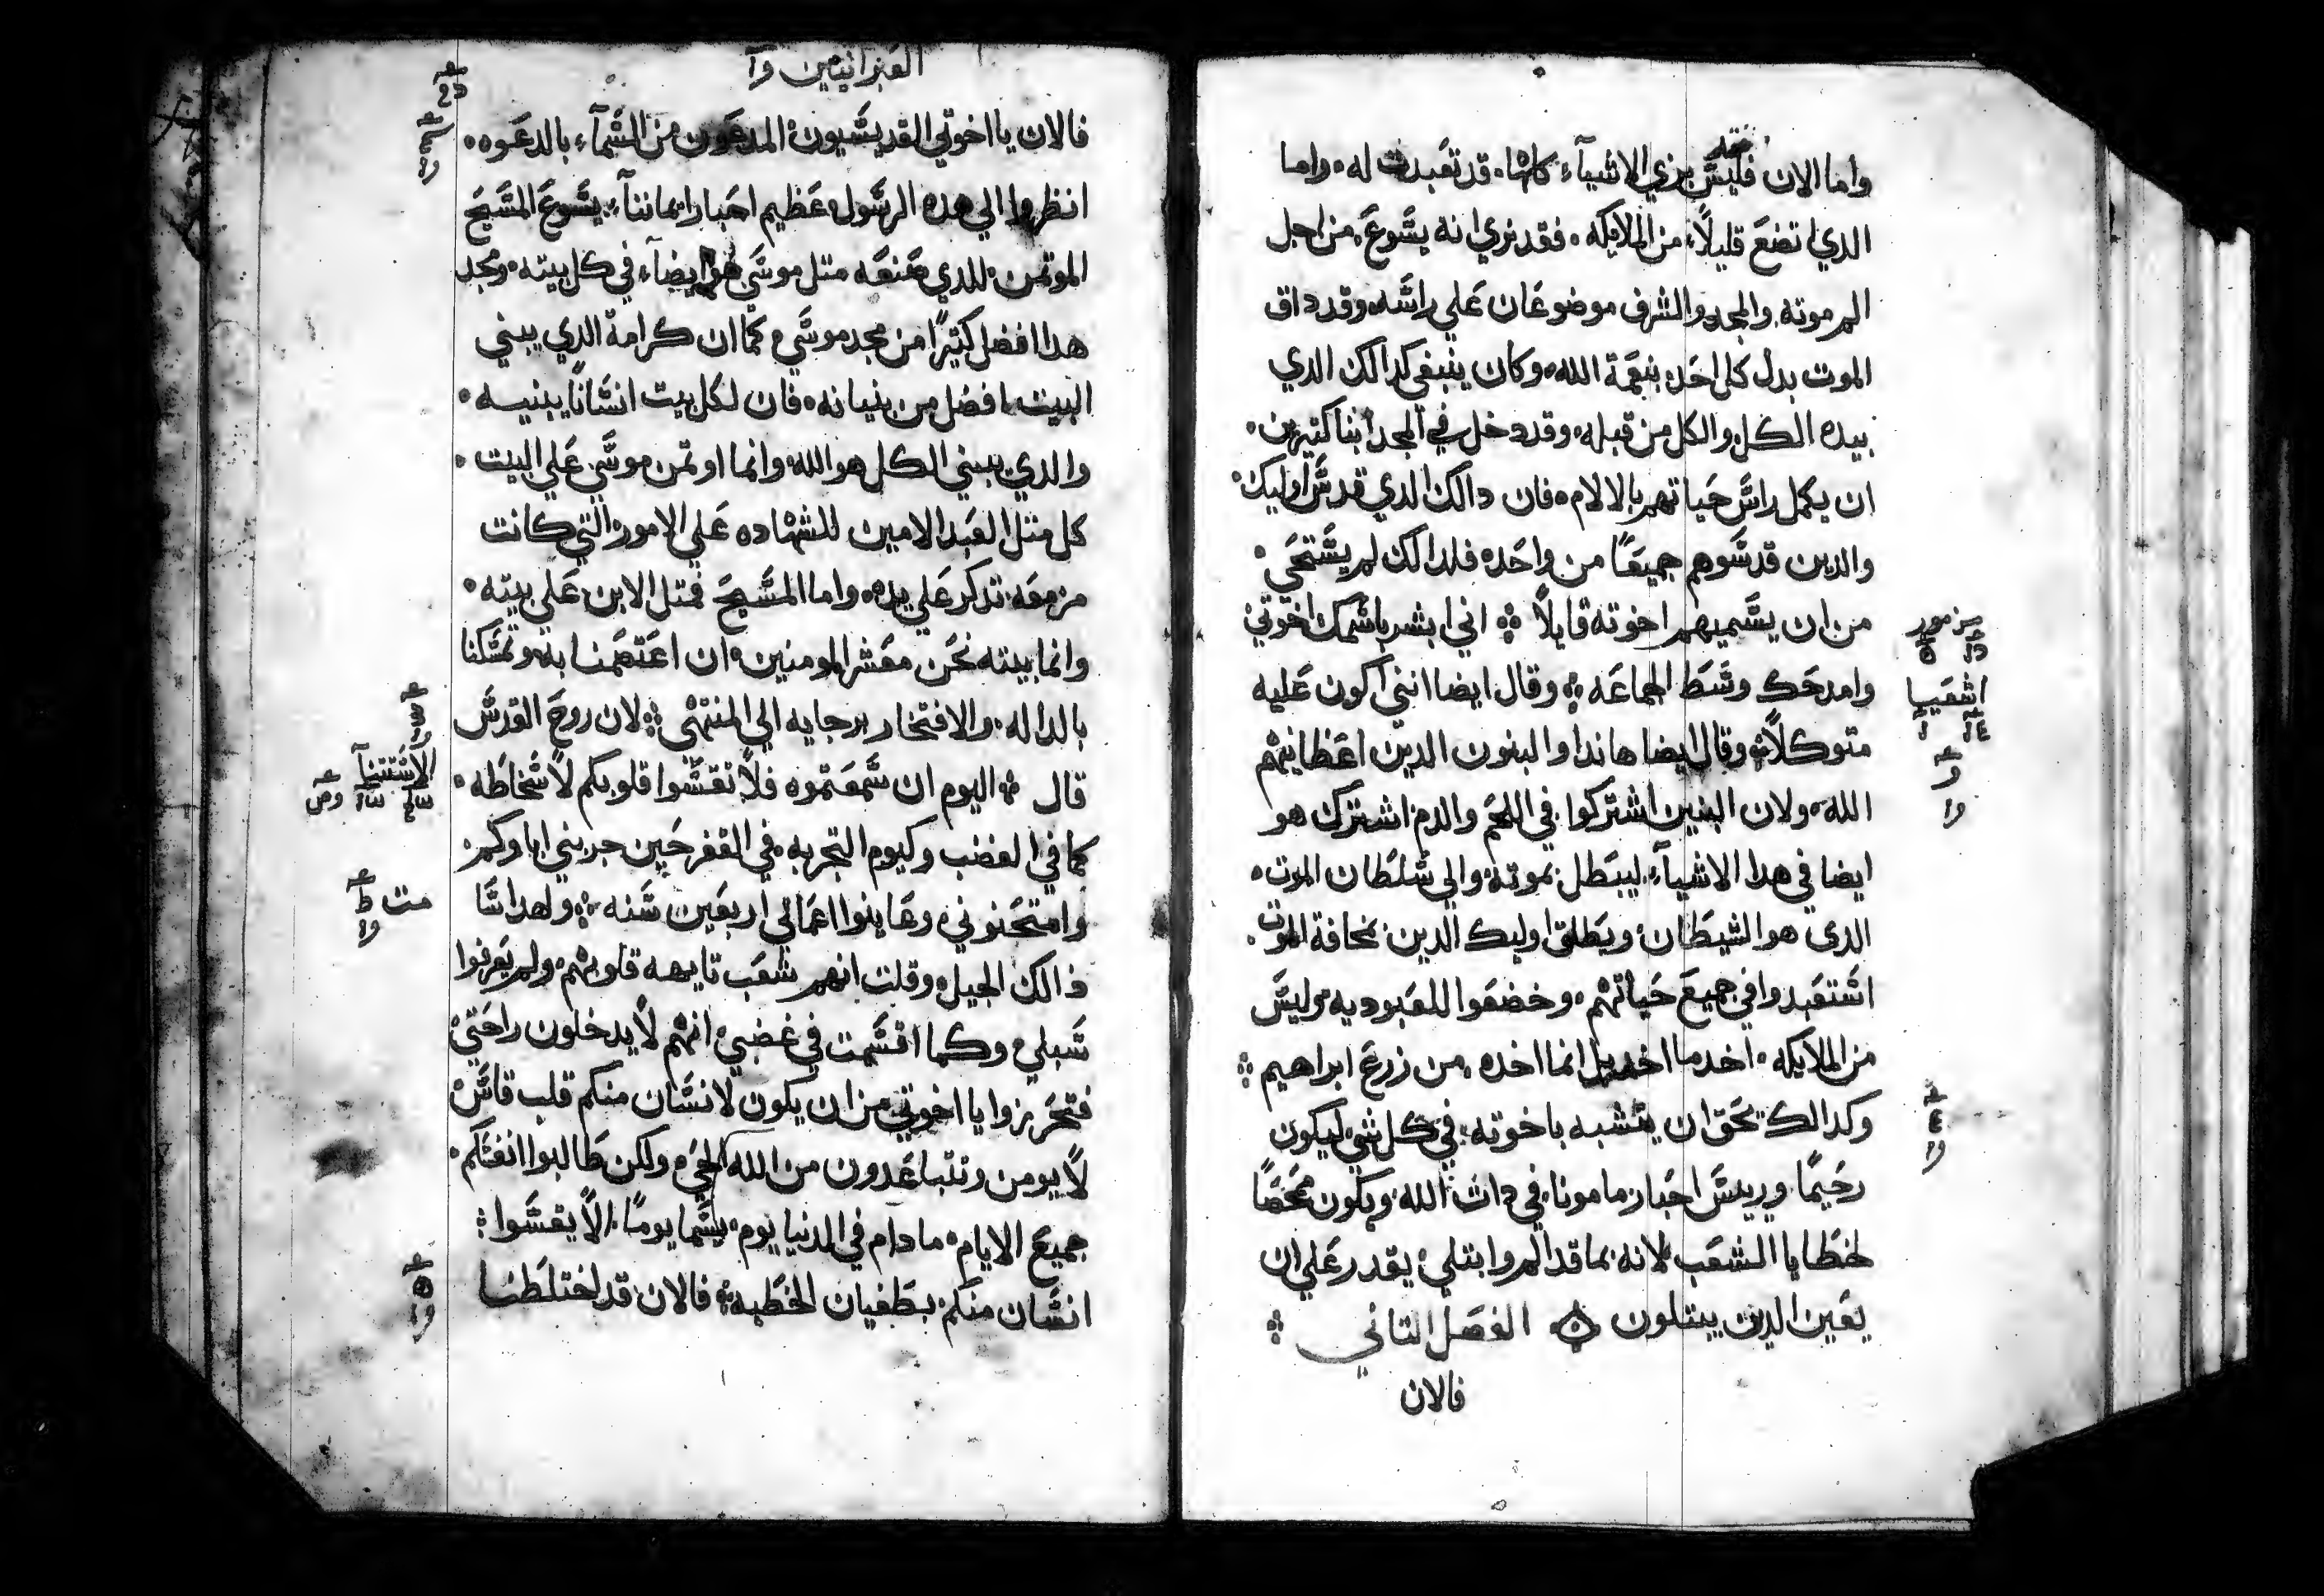 واما الان فليس نري الاشياء كلها قد تعبدت له واما
الدي اتضع قليلاً من الملايكه فقد نري انه يسوع من اجل
الم موته والمجد والشرف موضوعان علي راسه وقد داق
الموت بدل كل احد بنعمة الله وكان ينبغي كدالك الدي
بيده الكل والكل من قبله وقد دخل في المجد ابنا كتيرين
ان يكمل راس حياتهم بالالام فان دالك الدي قدس اوليك
والدين قدسوهم جميعًا من واحده فلدالك لم يستحي
من ان يسميهم اخوته قايلاً اني ابشر باسمك اخوتي
وامدحك وسط الجماعه وقال ايضا انني اكون عليه
متوكلاً وقال ايضا هاندا والبنون الدين اعطانيهم
الله ولان البنين اشتركوا في اللحم والدم اشترك هو
ايضا في هدا الاشياء ليبطل بموته والي سلطان الموت
الدي هو الشيطان ويطلق اوليك الدين بمخافة الموت
استعبدوا في جميع حياتهم وخضعوا للعبوديه وليس
من الملايكه اخد ما اخد بل انما اخده من زرع ابراهيم
وكدالك تحق ان يتشبه باخوته في كل شي ليكون
رحيمًا وريس احبار مامونا في دات الله ويكون ممحصًا
لخطايا الشعب لانه بما قد الم وابتلي يقدر علي ان
يعين الدين يبتلون الفصل التاني
فالان
مزمور
اشعيا
العبرانيين
فالان يا اخوتي القديسيون المدعون من السماء بالدعوه
انظروا الي هده الرسول عظيم احبار ايماننا يسوع المسيح
الموتمن للدي صنعه متل موسي هو ايضا في كل بيته ومجد
هدا افضل كتيرًا من مجد موسي كما ان كرامة الدي يبني
البيت افضل من بنيانه فان لكل بيت انسانًا يبنيه
والدي يبني الكل هو الله وانما اوتمن موسي علي البيت
كل متل العبد الامين للشهاده علي الامور التي كانت
مزمعه تدكر علي يده واما المسيح فمتل الابن علي بيته
وانما بيته نحن معشر المومنين ان اعتصمنا به وتمسكنا
بالداله والافتخار برجايه الي المنتهي لان روح القدس
قال اليوم ان سمعتموه فلا تقسوا قلوبكم لاسخاطه
كما في الغضب وكيوم التجربه في القفر حين جربني اباوكم
وامتحنوني وعاينوا اعمالي اربعين سنه ولهدا سا
ذالك الجيل وقلت انهم شعب تايهه قلوبهم ولم يعرفوا
سبلي وكما اقسمت في غضبي انهم لا يدخلون راحتي
فتحرزوا يا اخوتي من ان يكون لانسان منكم قلب قاس
لا يومن وتتباعدون من الله الحي ولكن طالبوا انفسكم
جميع الايام ما دام في الدنيا يوم يسما يومًا الا يقسوا
انسان منكم بطغيان الخطيه فالان قد اختلطنا
الاستتنا
مت